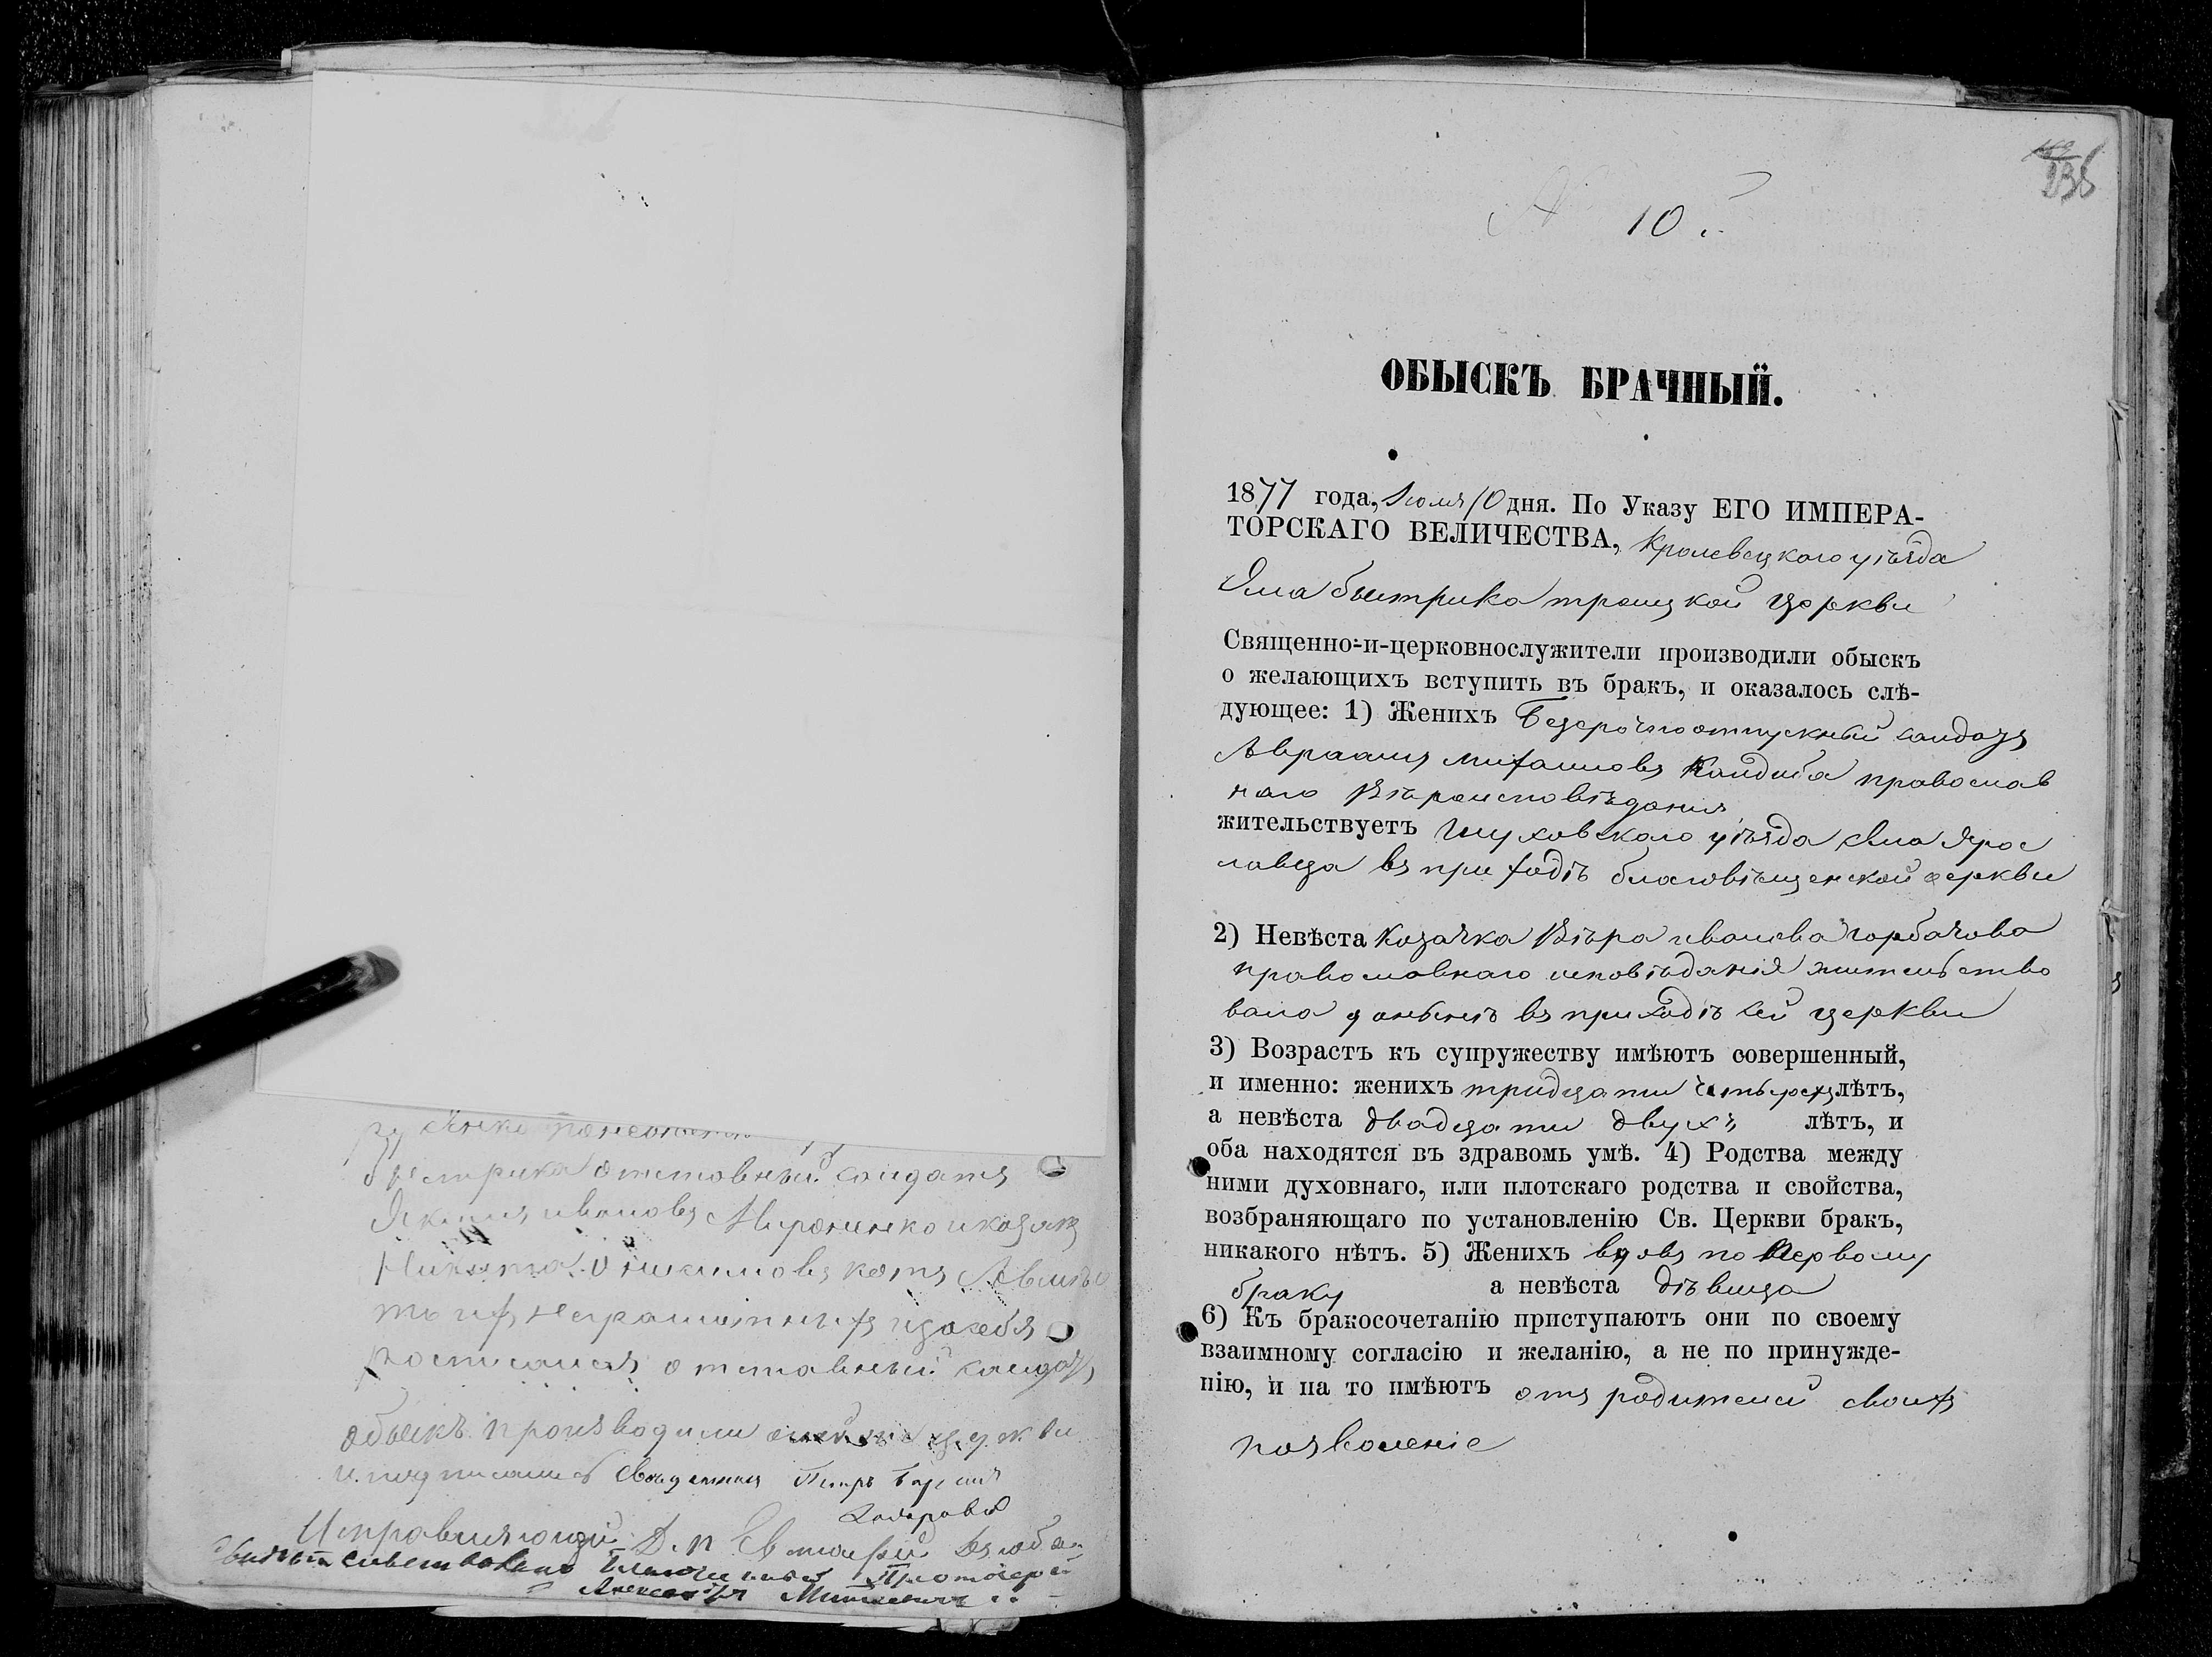 быстрика отставный солдатъ
Якимъ ивановъ Мироненко и козакъ
Никита котъ
тъ ихъ неграмотныхъ и за себя
росписался отставный солдатъ
обыскъ производили церкви
и подписались Священникъ Петръ
Исправляющій Д. п.
Свидѣтельствовалъ Благочинный Протоіерей
Александръ
138
10.
ОБЫСКЪ БРАЧНЫЙ.
1877 года, Іюля 10 дня. По Указу ЕГО ИМПЕРА-
ТОРСКАГО ВЕЛИЧЕСТВА, Кролевецкого уѣзда
Села быстрика троицкой церкви
Священно-и-церковнослужители производили обыскъ
о желающихъ вступить въ бракъ, и оказалось слѣ-
дующее: 1) Женихъ Безсрочноотпускный солдатъ
Авраамъ михаиловъ Кандиба православ
наго Вѣроисповѣданія
жительствуетъ Глуховскаго уѣзда села Ярос
лавца въ приходѣ благовѣщенской церкви
2) Невѣста Козачка Вѣра иванова горбачова
православнаго исповѣданія жительство
вала донынѣ въ приходѣ сей церкви
3) Возрастъ къ супружеству имѣютъ совершенный,
и именно: женихъ тридцати четырехъ лѣтъ,
а невѣста двадцати двухъ лѣтъ, и
оба находятся въ здравомъ умѣ. 4) Родства между
ними духовнаго, или плотскаго родства и свойства,
возбраняющаго по установленію Св. Церкви бракъ,
никакого нѣтъ. 5) Женихъ вдовъ по Первому
браку а невѣста дѣвица
6) Къ бракосочетанію приступаютъ они по своему
взаимному согласію и желанію, а не по принужде-
нію, и на то имѣютъ отъ родителей своихъ
позволеніе